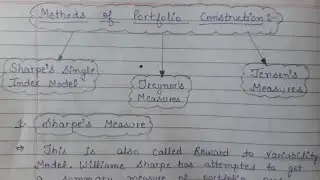 Methods of Portfolio Construction :-
Sharpe's Single
Index Model
Treynor's
Measures
Jensen's
Measures
1. Sharpe's Measure
⇒ This is also called Reward to Variability
Model. Williams Sharpe has attempted to get
a summary measure of portfolio